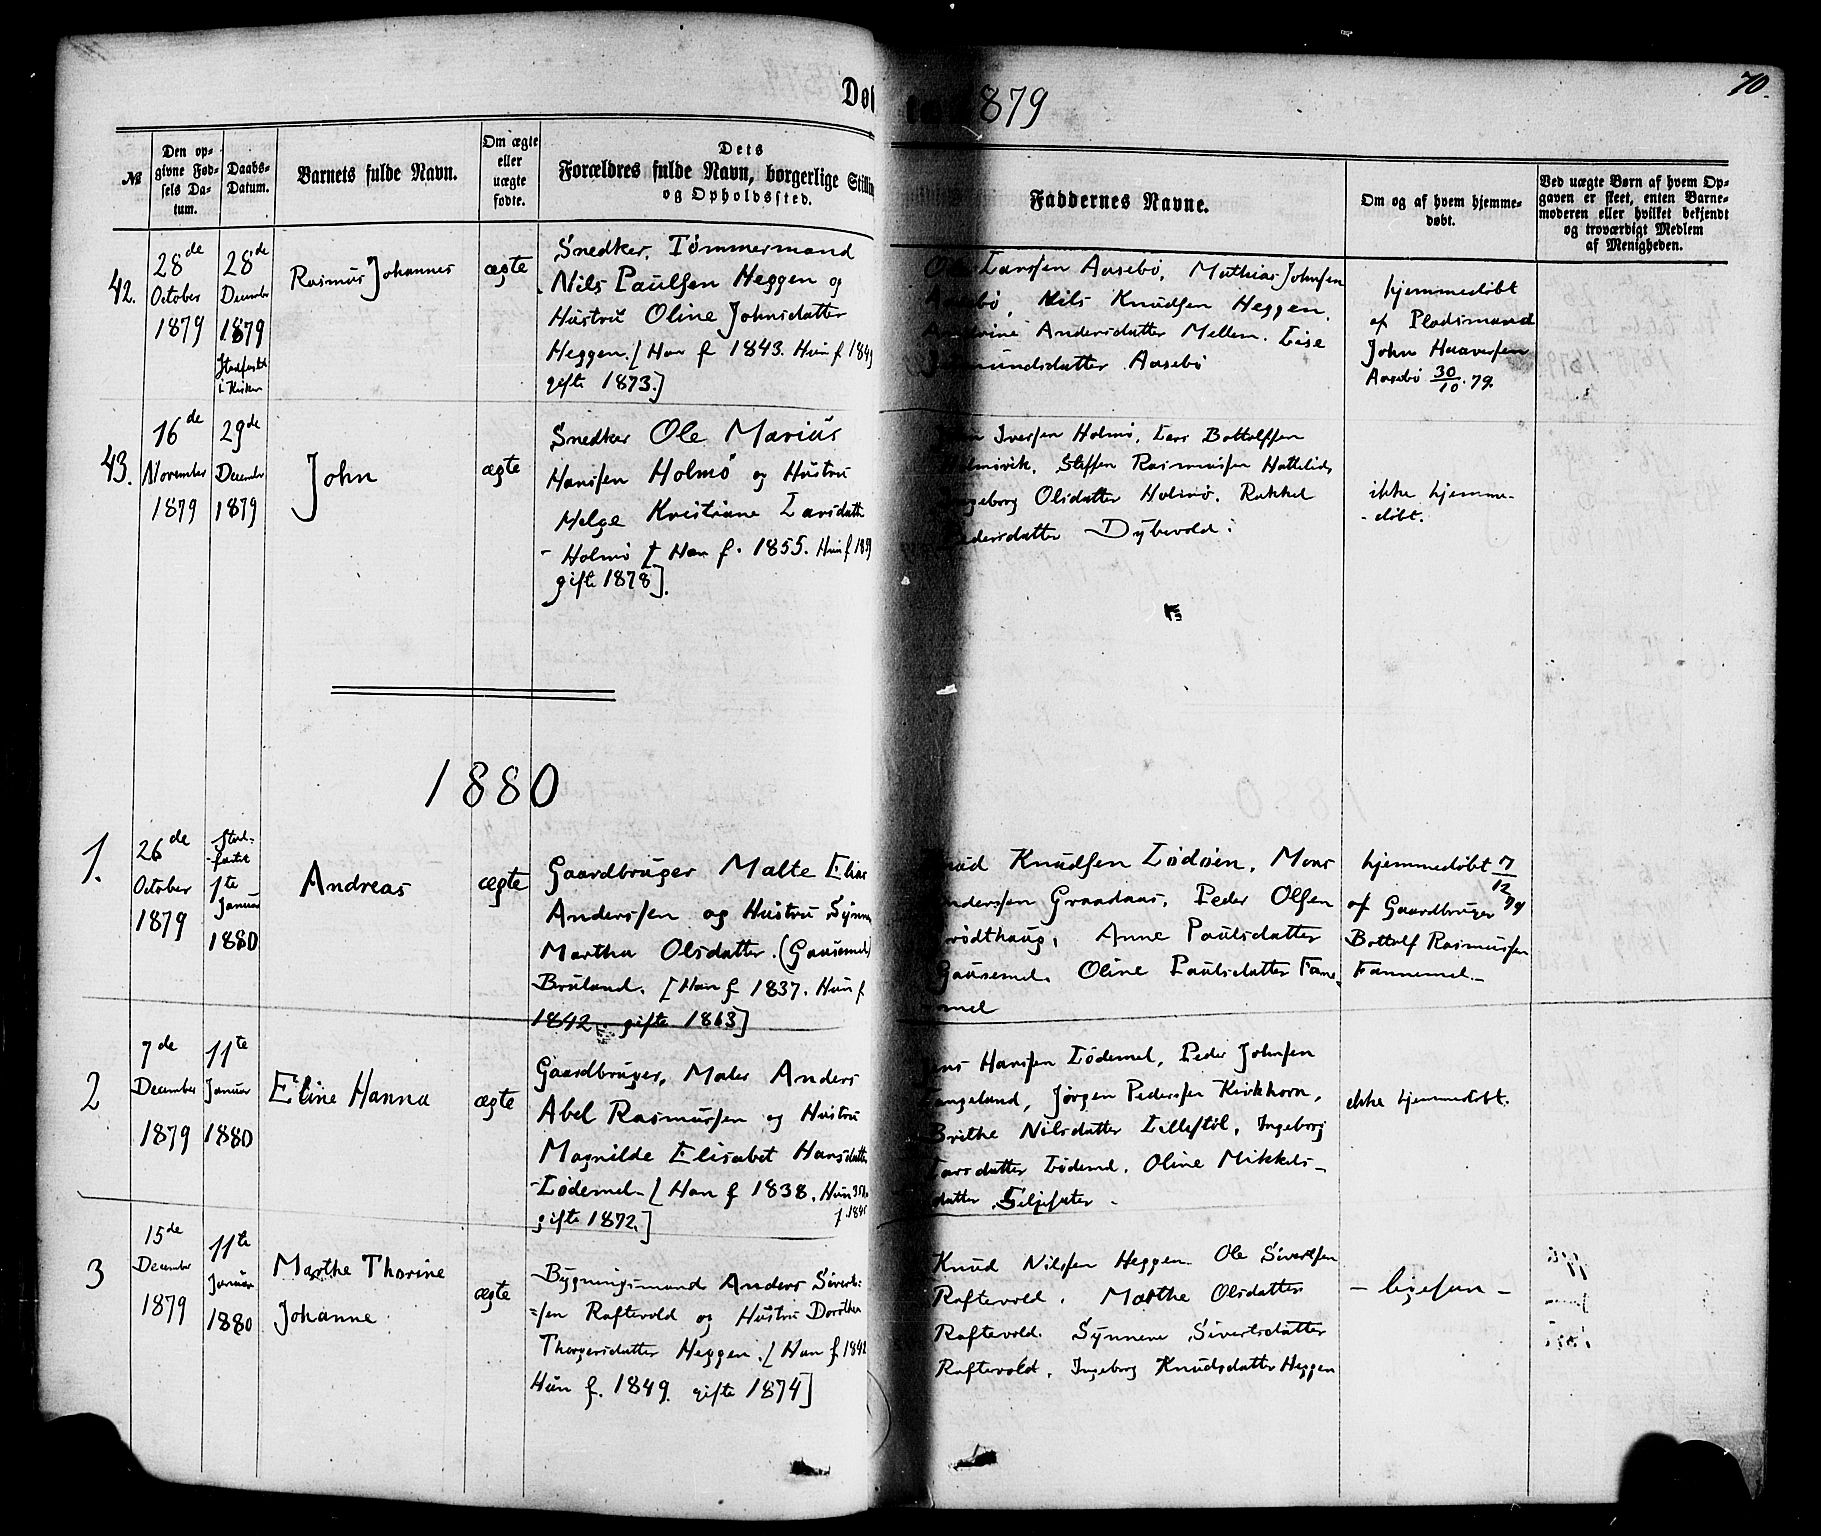 70.
Dø 879
№
Den op-
givne Fød-
sels Da-
tum.
Daabs-
Datum.
Barnets fulde Navn.
Om ægte
eller
uægte
fødte.
Dets
Forældres fulde Navn, borgerlige Stillin
og Opholdssted.
Faddernes Navne.
Om og af hvem hjemme-
døbt.
Ved uægte Børn af hvem Op-
gaven er skeet, enten Barne-
moderen eller hvilket bekjendt
og troværdigt Medlem
af Menigheden.
42.
28de
October
1879
28de
December
1879
Stadfæstet
i Kirken
Rasmus Johannes
ægte
Snedker, Tømmermand
Nils Paulsen Heggen og
Hustru Oline Johnsdatter
Heggen. [Han f 1843. Hun f 1849
gifte 1873.]
Larssen Aasebø, Mathias Johnsen
Nils Knudsen Heggen,
Andersdatter Mellem. Lise
Aasebø
hjemmedøbt
af Pladsmand
John Haaversen
Aasebø 30/10.79.
43.
16de
November
1879
29de
December
1879
John
ægte
Snedker Ole Marius
Hanssen Holmø og Hustru
Helge Kristiane Larsdatte
Holmø [Han f. 1855. Hun f 18
gifte 1878].
Iverssen Holmø, Lars Bottolfsen
Holmøvik, Steffen Rasmussen Hattelid,
Ingeborg Olsdatter Holmø. Rakkel
Pedersdatter Dybevold.
ikke hjemme-
-døbt.
1880
1.
26de
October
1879
Stad-
-fæstet
1te
Januar
1880
Andreas
ægte
Gaardbruger Malte Elias
Anderssen og Hustru Synne
Martha Olsdatter. (Gausemel)
Bruland. [Han f 1837. Hun f
1842. gifte 1863]
Knud Knudsen Lødøen, Mons
Anderssen Graadaas, Peder Olsen
Anne Paulsdatter
Gausemel. Oline Paulsdatter Fane-
mel
hjemmedøbt 7/12 79
af Gaardbruger
Bottolf Rasmussen
Fannemel.
2
7de
December
1879
11te
Januar
1880
Eline Hanna
ægte
Gaardbruger, Maler Anders
Abel Rasmussen og Hustru
Magnilde Elisabet Hansdatter
Lødemel. [Han f 1838. Hun
gifte 1872.]
Jens Hanssen Lødemel, Peder Johnsen
Langeland, Jørgen Pederssen Kirkhorn,
Brithe Nilsdatter Lillestøl, Ingeborg
Larsdatter Lødemel. Oline Mikkels-
datter Seljeseter.
ikke hjemmedøbt.
3
15de
December
1879
11te
Januar
1880
Marthe Thorine
Johanne
ægte
Bygningsmand Anders Siverts-
=sen Raftevold og Hustru Dorthea
Thorgersdatter Heggen. [Han f. 1842
Hun f. 1849. gifte 1874]
Knud Nilssen Heggen. Ole Sivertsen
Raftevold. Marthe Olsdatter
Raftevold. Synneve Sivertsdatter
Raftevold, Ingeborg Knudsdatter Heggen
- ligesaa -